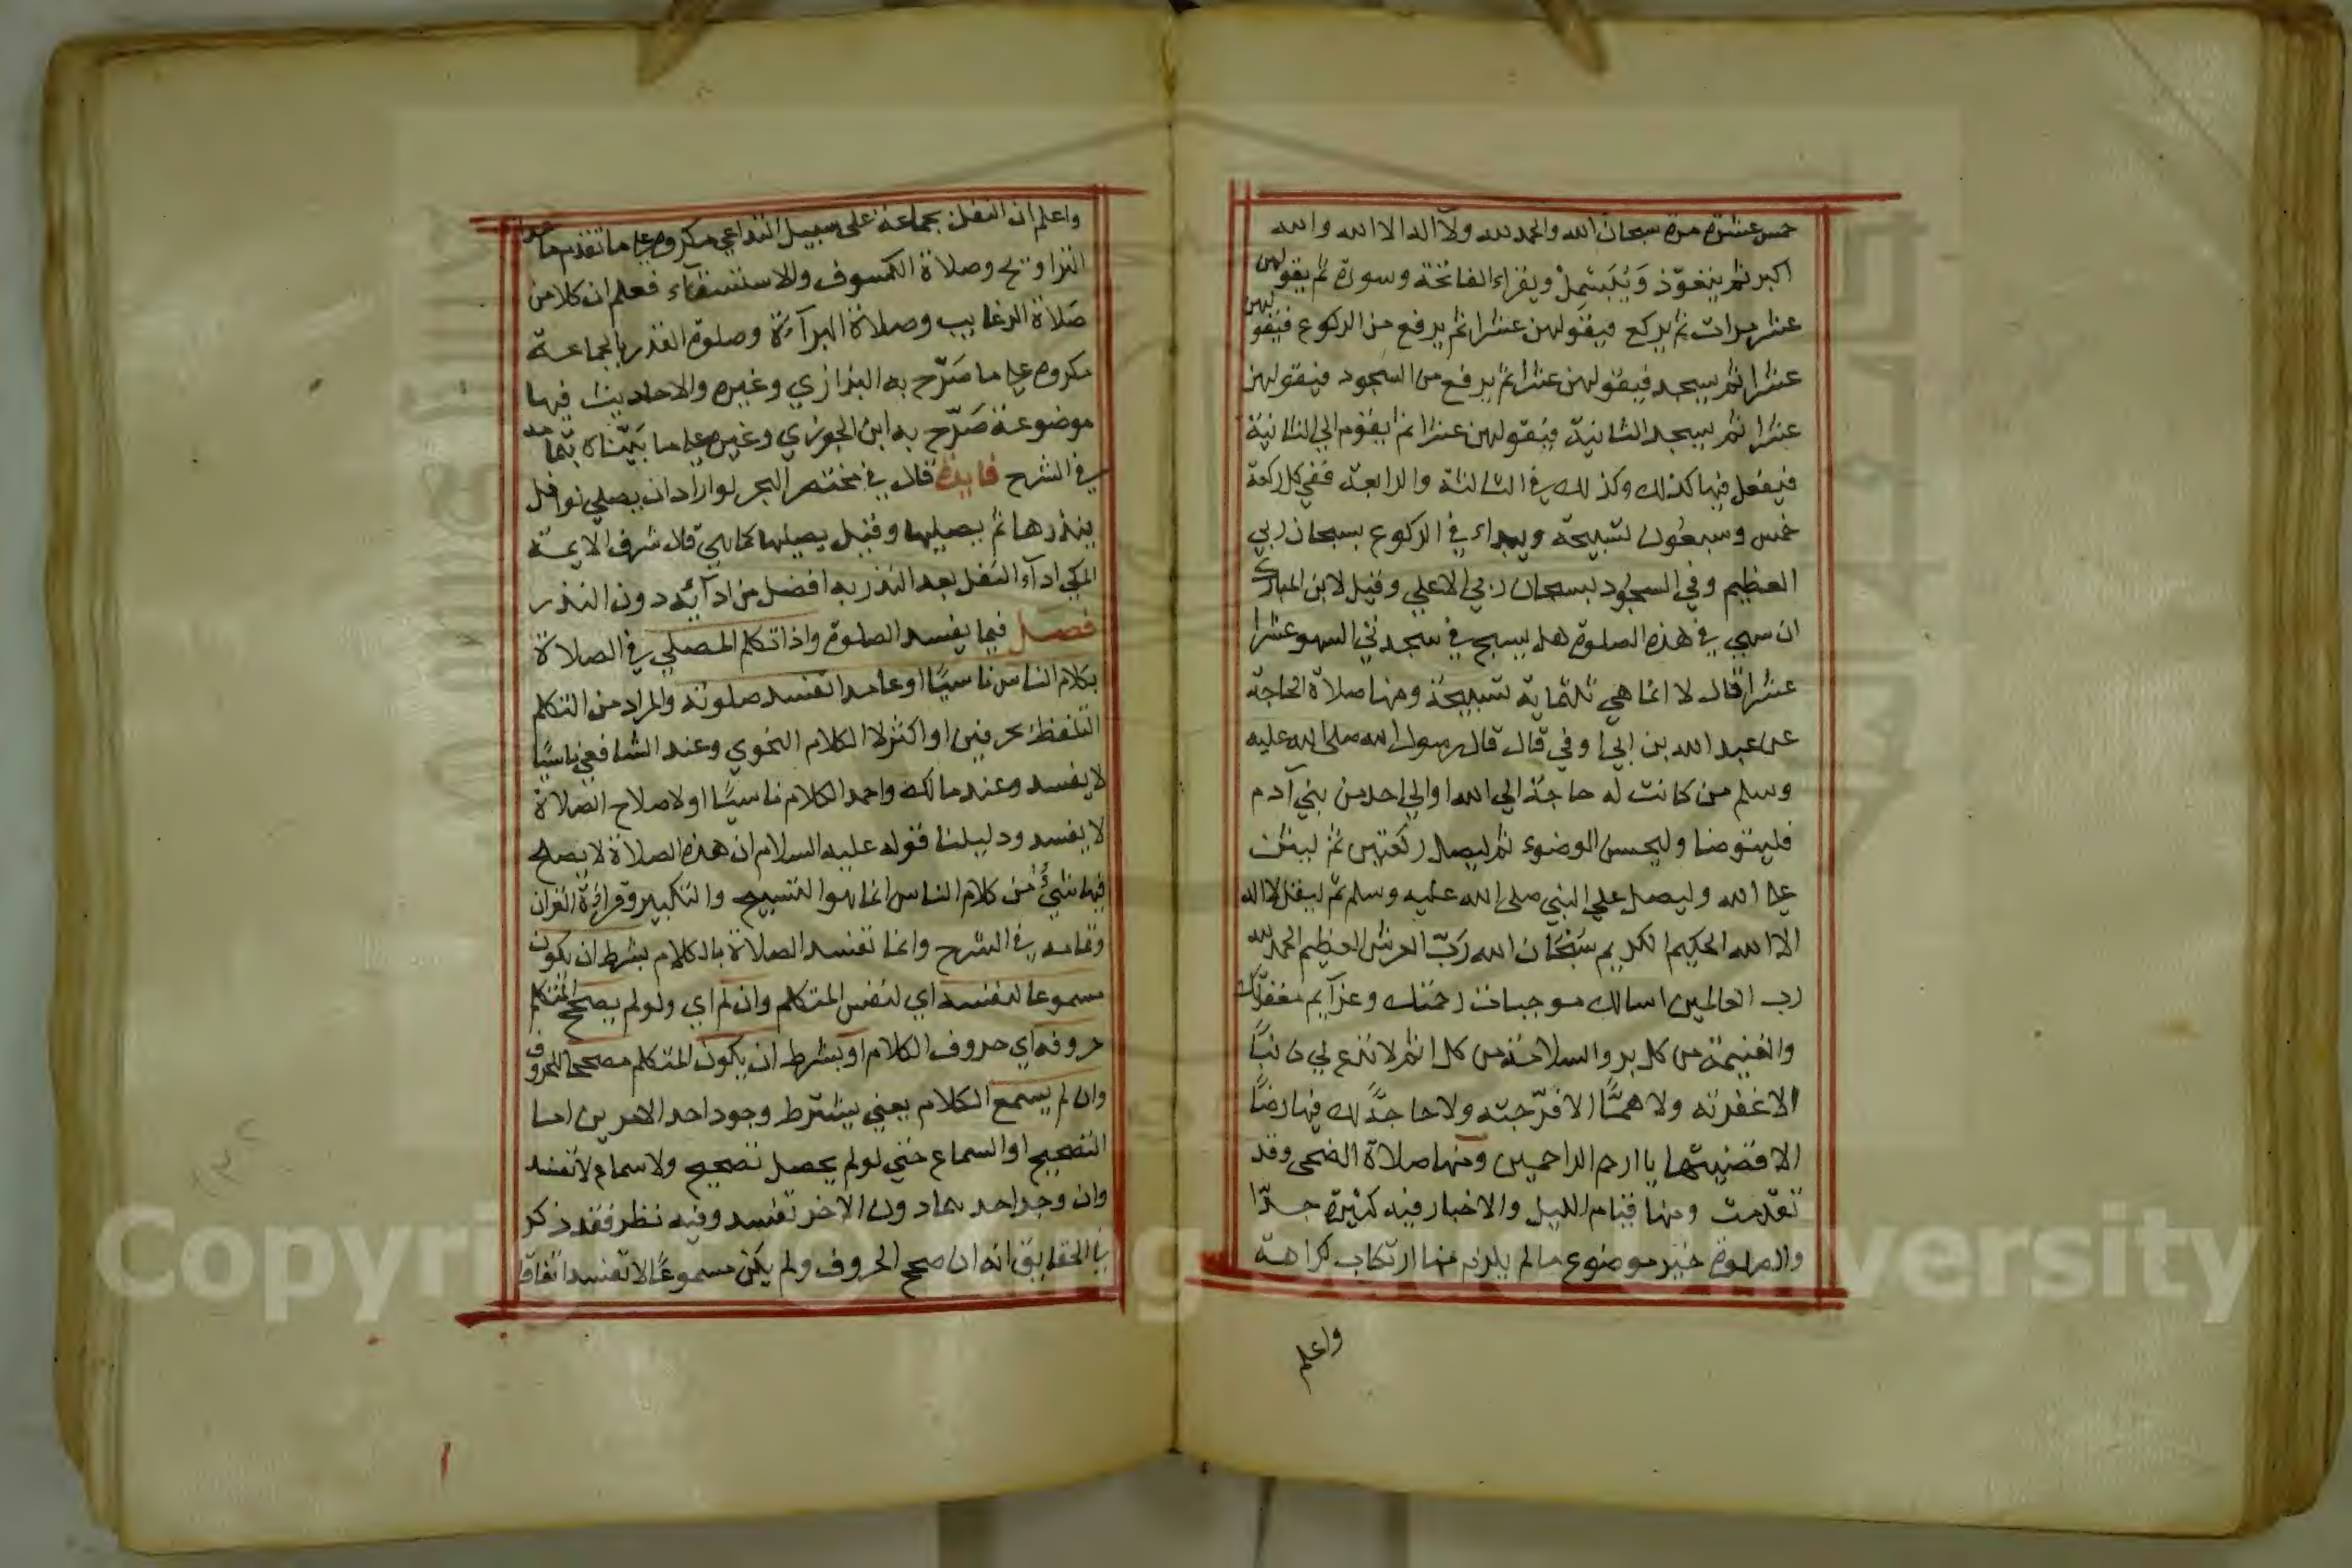 خمس عشرة مرة سبحان الله والحمد لله ولا اله الا الله والله
اكبر ثم يتعوّذ وَيُبَسْمِلْ ويقراء الفاتحة وسورة ثم يقولهن
عشر مرات ثم يركع فيقولهن عشرا ثم يرفع من الركوع فيقولهن
عشرا ثم يسجد فيقولهن عشرا ثم يرفع من السجود فيقولهن
عشرا ثم يسجد الثانية فيقولهن عشرا ثم يقوم الي الثانية
فيفعل فيها كذلك وكذلك في الثالثة والرابعة ففي كل ركعة
خمس وسبعون تسبيحة ويبداء في الركوع بسبحان ربي
العظيم وفي السجود بسبحان ربي الاعلي وقيل لابن المبارك
ان سهي في هذه الصلوة هل يسبح في سجدتي السهو عشرا
عشرا قال لا انما هي ثلثماية تسبيحة ومنها صلاة الحاجة
عن عبد الله بن ابي اوفي قال قال رسول الله صلى الله عليه
وسلم من كانت له حاجة الي الله او الي احد من بني آدم
فليتوضا وليحسن الوضوء ثم ليصل ركعتين ثم ليثن
علي الله وليصل علي النبي صلى الله عليه وسلم ثم ليقل لا اله
الا الله الحكيم الكريم سُبْحَان الله رَبّ العرش العظيم الحمد لله
رب العالمين اسالك موجبات رحمتك وعزآيم مغفرتك
والغنيمة من كل بر والسلامة من كل اثم لا تدع لي ذنبًا
الا غفرته ولا همًّا الا فرّجته ولا حاجةً لك فيها رضًا
الا قضيتها يا ارحم الراحمين ومنها صلاة الضحى وقد
تقدّمت ومنها قيام الليل والاخبار فيه كثيرة جدّا
والصلوة خير موضوع ما لم يلزم منها ارتكاب كراهة
واعلم
واعلم ان النفل بجماعة على سبيل التداعي مكروه علي ما تقدم ما عدا
التراويح وصلاة الكسوف والاستسقآء فعلم ان كلا من
صَلاة الرغايب وصلاة البرآءة وصلوة القدر بالجماعة
مكروه علي ما صَرّح به البزازي وغيره والاحاديث فيها
موضوعة صَرّح به ابن الجوزي وغيره علي ما بَيّناه بتمامه
في الشرح فايدة قال في مختصر البحر لو اراد ان يصلي نوافل
ينذرها ثم يصليها وقيل يصليها كما هي قال شرف الايمة
المكي ادآء النفل بعد النذر به افضل من ادآئه دون النذر
فصل فيما يفسد الصلوة واذا تكلم المصلي في الصلاة
بكلام الناس ناسيًا او عامدا تفسد صلوته والمراد من التكلم
التلفظ بحرفين او اكثر لا الكلام النحوي وعند الشافعي ناسيًا
لا يفسد وعند مالك واحمد الكلام ناسيًا او لاصلاح الصلاة
لا يفسد ودليلنا قوله عليه السلام ان هذه الصلاة لا يصلح
فيها شيئٌ من كلام الناس انما هو التسبيح والتكبير وقراءة القران
وتمامه في الشرح وانما تفسد الصلاة بالكلام بشرط ان يكون
مسموعا لنفسه اي لنفس المتكلم وان لم اي ولو لم يصحح المتكلم
حروفه اي حروف الكلام او بشرط ان يكون المتكلم مصححا للحروف
وان لم يسمع الكلام يعني يشترط وجود احد الامرين اما
التصحيح او السماع حتي لو لم يحصل تصحيح ولا سماع لا تفسد
وان وجد احدهما دون الاخر تفسد وفيه نظر فقد ذكر
الحقايق انه ان صحح الحروف ولم يكن مسموعًا لا تفسد اتفاقا
Copyright © King Saud University